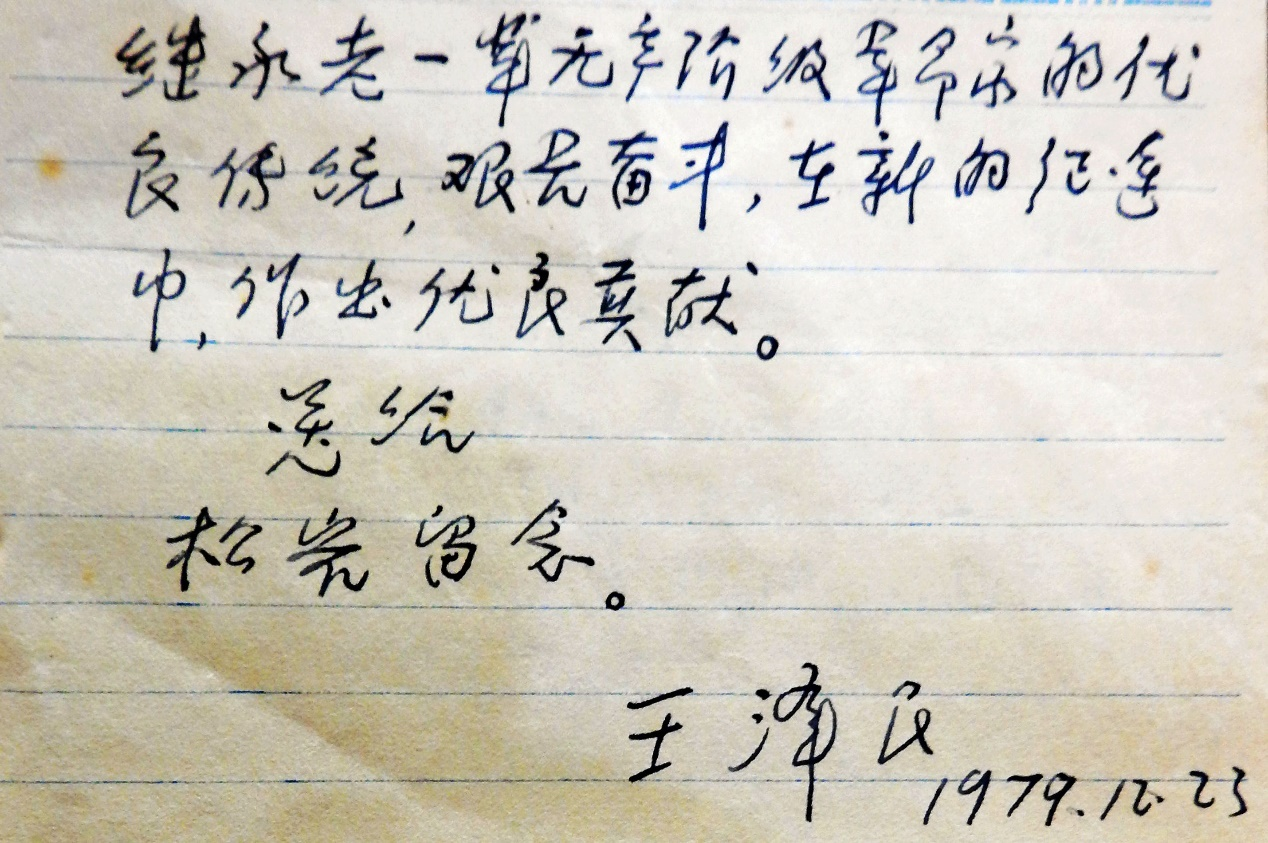 继承老一辈无产阶级革命家的优
良传统,艰苦奋斗,在新的征途
中,作出优良贡献。
送给
松岩留念。
王泽民
1979.12.23